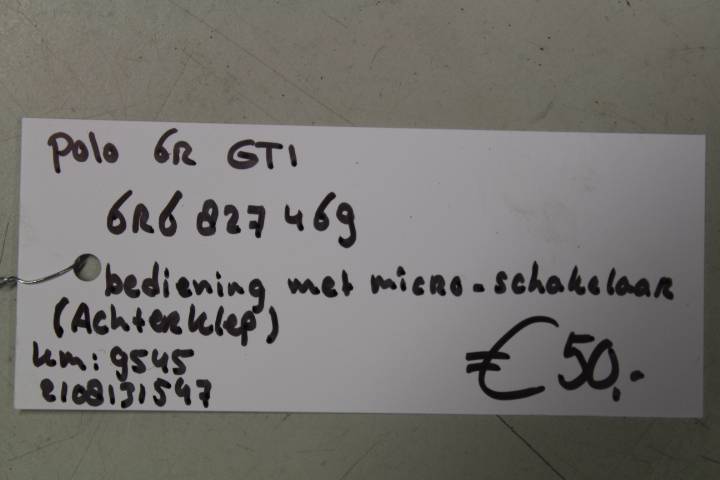 Polo 6R GTI
6R6 827 469
bediening met micro-schakelaar
(Achterklep)
km: 9545
2108131547
€ 50,-